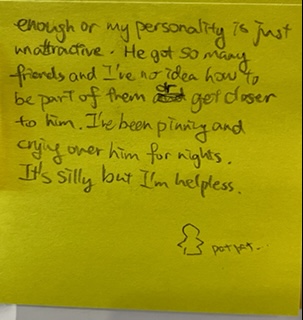 enough or my personality is just
unattractive. He got so many
friends and I've no idea how to
be part of them or get closer
to him. I've been pinning and
crying over him for nights.
It's silly but I'm helpless.
pat pat.